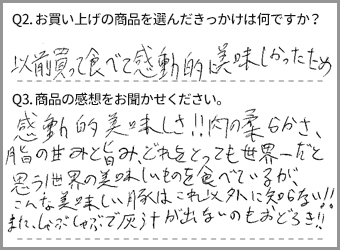 Q2. お買い上げの商品を選んだきっかけは何ですか？
以前買って食べて感動的に美味しかったため
Q3. 商品の感想をお聞かせください。
感動的美味しさ!!肉の柔らかさ、
脂の甘みと旨み、どれをとっても世界一だと
思う!世界の美味しいものを食べているが
こんな美味しい豚はこれ以外に知らない!!
また、しゃぶしゃぶで灰汁が出ないのもおどろき!!